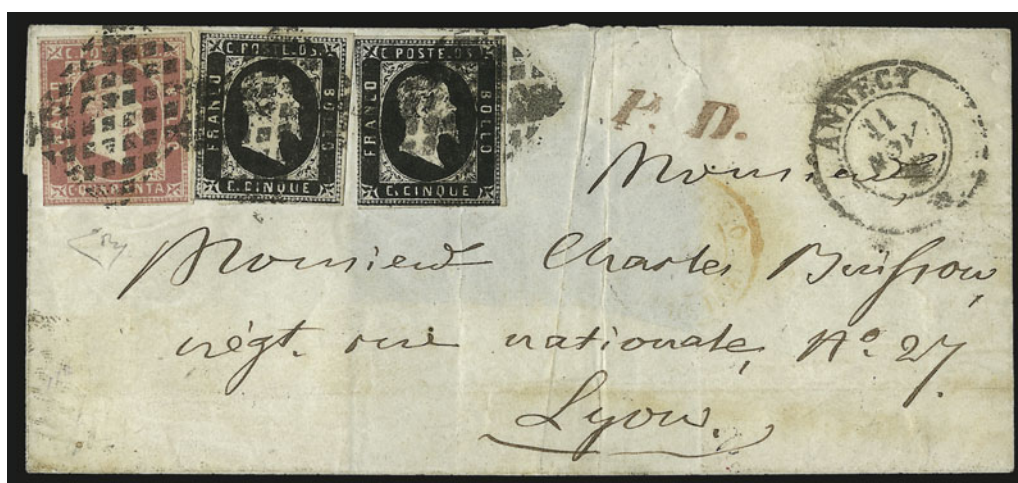 C. POSTE. Os.
FRANCO
BOLLO
C. QUARANTA
C. POSTE. Os.
FRANCO
BOLLO
C. CINQUE
C. POSTE. Os.
FRANCO
BOLLO
C. CINQUE
P. D.
ANNECY
11
NOV
Monsieur
Monsieur Charles Buisson,
négt. rue nationale, No. 27
Lyon.